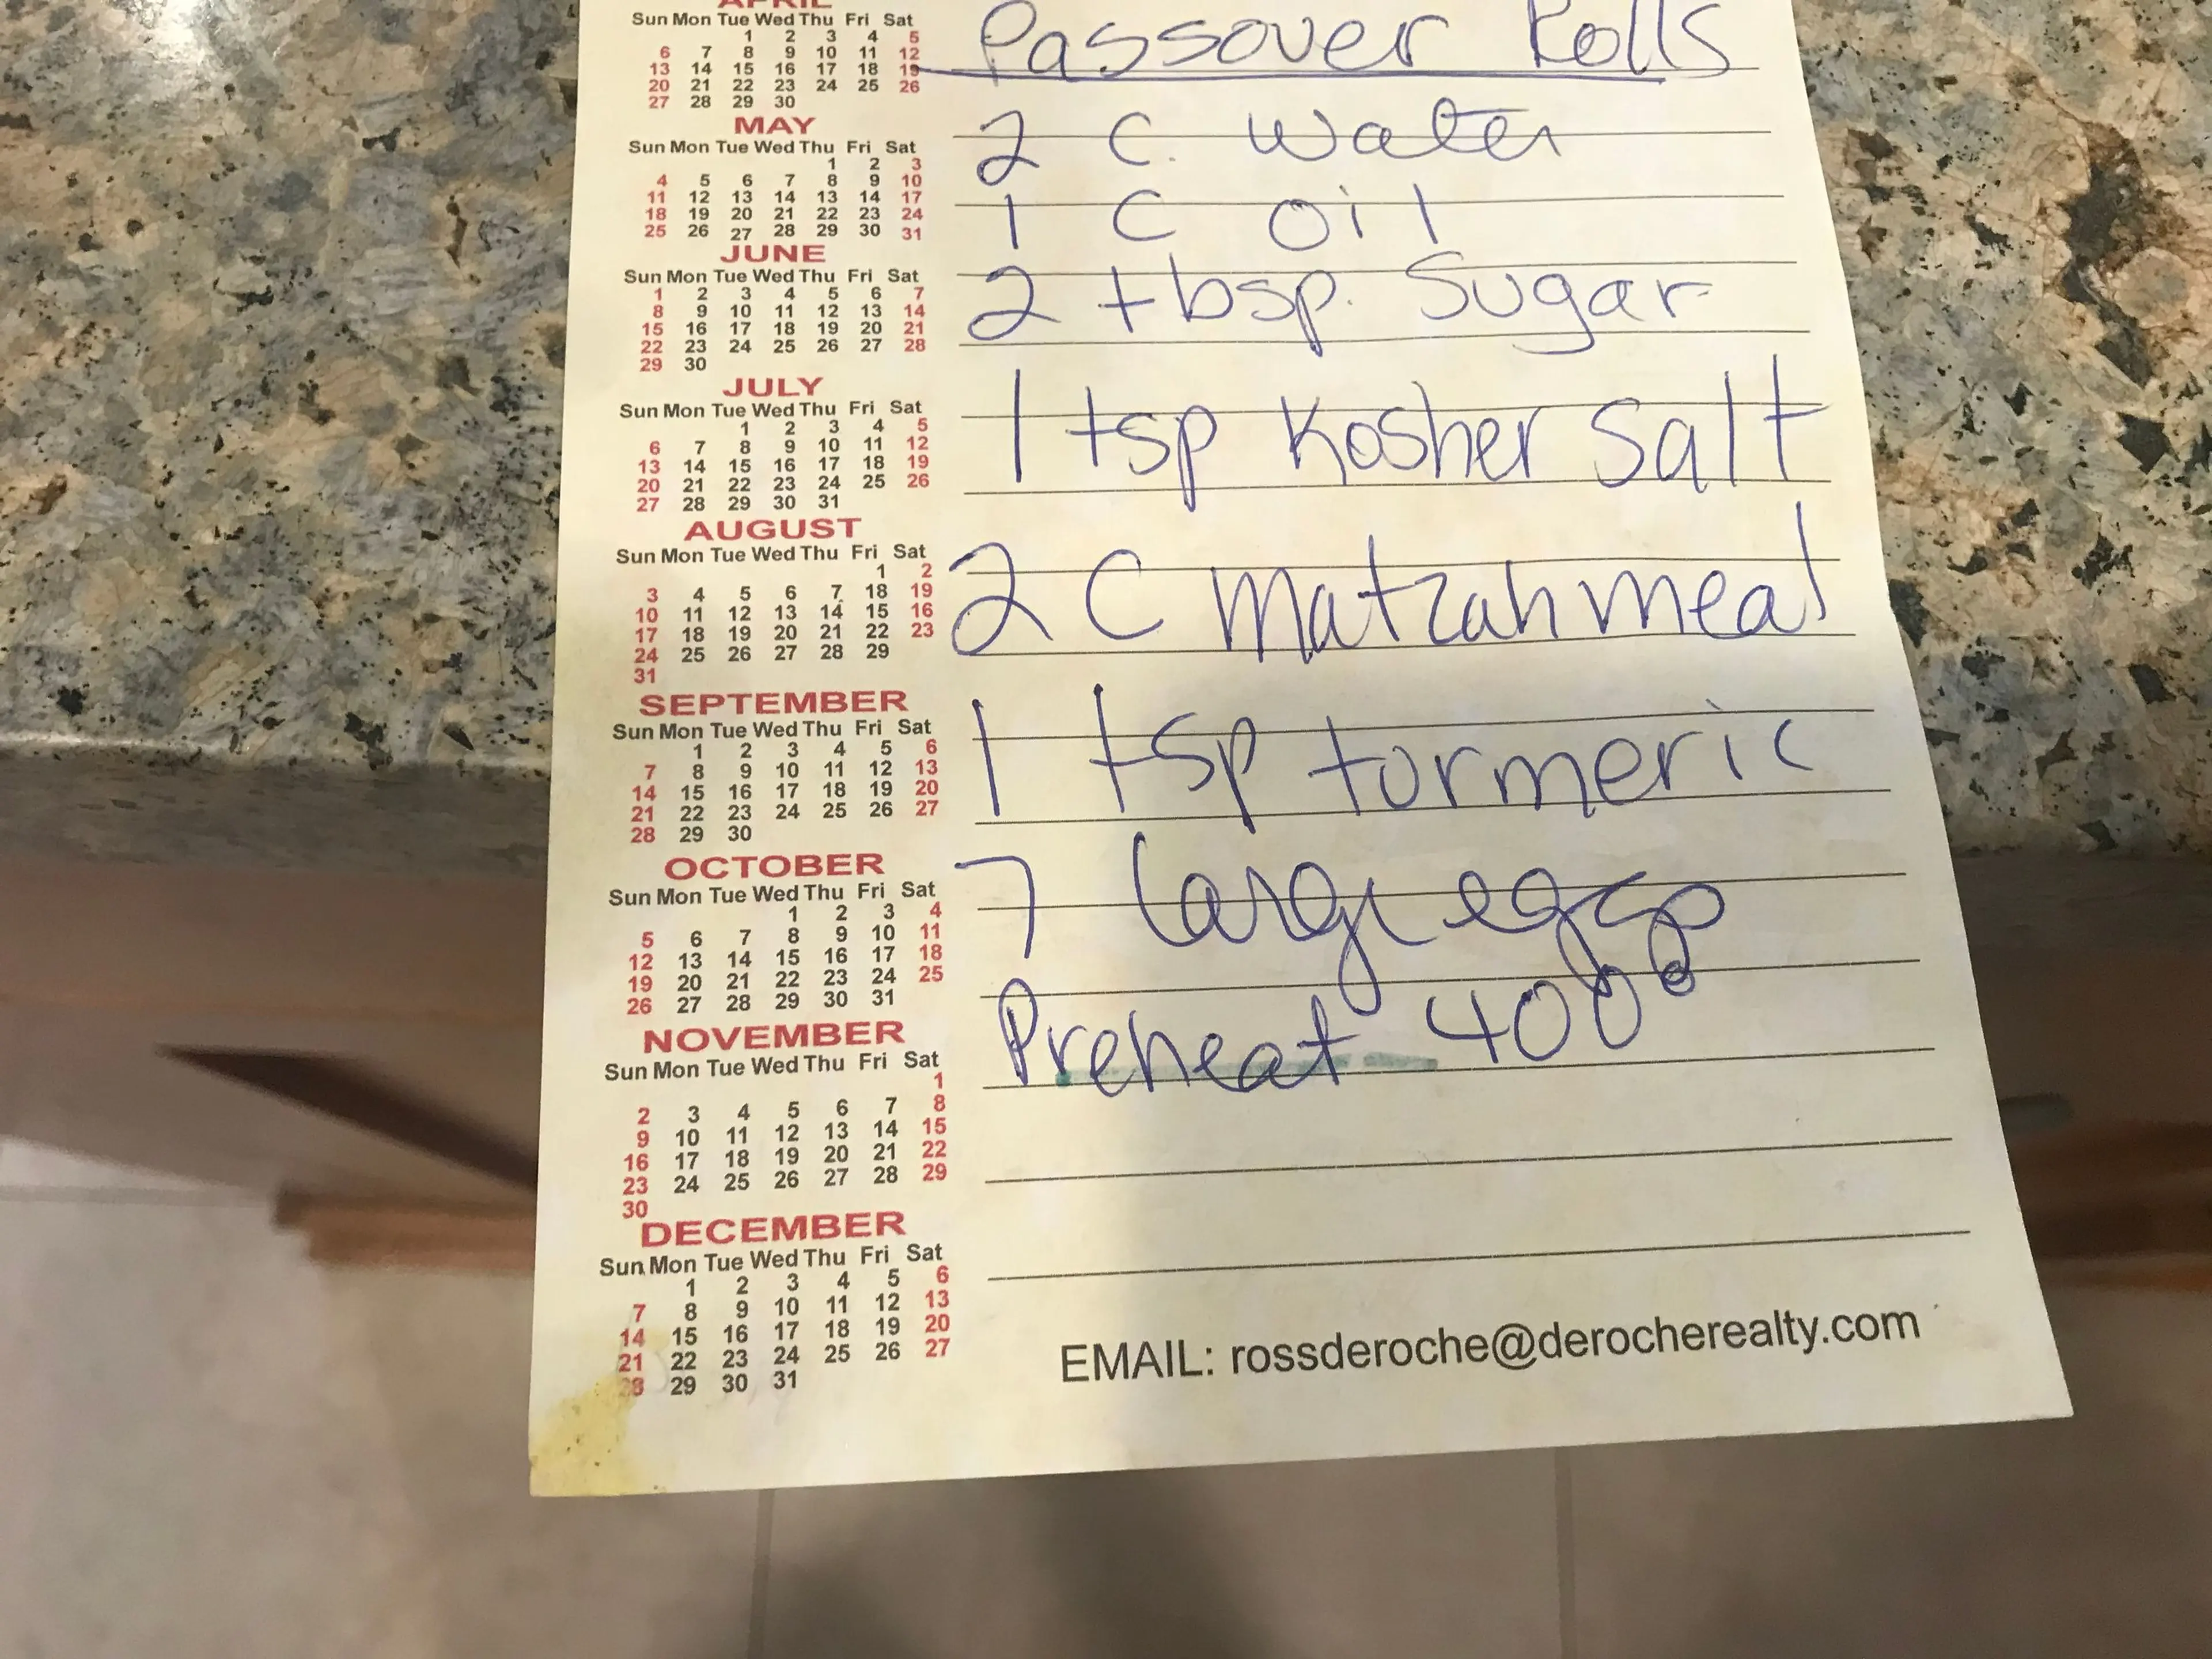 APRIL
Sun Mon Tue Wed Thu Fri Sat
1 2 3 4 5
6 7 8 9 10 11 12
13 14 15 16 17 18 19
20 21 22 23 24 25 26
27 28 29 30
MAY
Sun Mon Tue Wed Thu Fri Sat
1 2 3
4 5 6 7 8 9 10
11 12 13 14 13 14 17
18 19 20 21 22 23 24
25 26 27 28 29 30 31
JUNE
Sun Mon Tue Wed Thu Fri Sat
1 2 3 4 5 6 7
8 9 10 11 12 13 14
15 16 17 18 19 20 21
22 23 24 25 26 27 28
29 30
JULY
Sun Mon Tue Wed Thu Fri Sat
1 2 3 4 5
6 7 8 9 10 11 12
13 14 15 16 17 18 19
20 21 22 23 24 25 26
27 28 29 30 31
AUGUST
Sun Mon Tue Wed Thu Fri Sat
1 2
3 4 5 6 7 18 19
10 11 12 13 14 15 16
17 18 19 20 21 22 23
24 25 26 27 28 29
31
SEPTEMBER
Sun Mon Tue Wed Thu Fri Sat
1 2 3 4 5 6
7 8 9 10 11 12 13
14 15 16 17 18 19 20
21 22 23 24 25 26 27
28 29 30
OCTOBER
Sun Mon Tue Wed Thu Fri Sat
1 2 3 4
5 6 7 8 9 10 11
12 13 14 15 16 17 18
19 20 21 22 23 24 25
26 27 28 29 30 31
NOVEMBER
Sun Mon Tue Wed Thu Fri Sat
1
2 3 4 5 6 7 8
9 10 11 12 13 14 15
16 17 18 19 20 21 22
23 24 25 26 27 28 29
30
DECEMBER
Sun Mon Tue Wed Thu Fri Sat
1 2 3 4 5 6
7 8 9 10 11 12 13
14 15 16 17 18 19 20
21 22 23 24 25 26 27
28 29 30 31
Passover Rolls
2 C. Water
1 C Oil
2 tbsp. Sugar
1 tsp Kosher Salt
2 C Matzah meal
1 tsp turmeric
7 large eggs
Preheat 400°
EMAIL: rossderoche@derocherealty.com